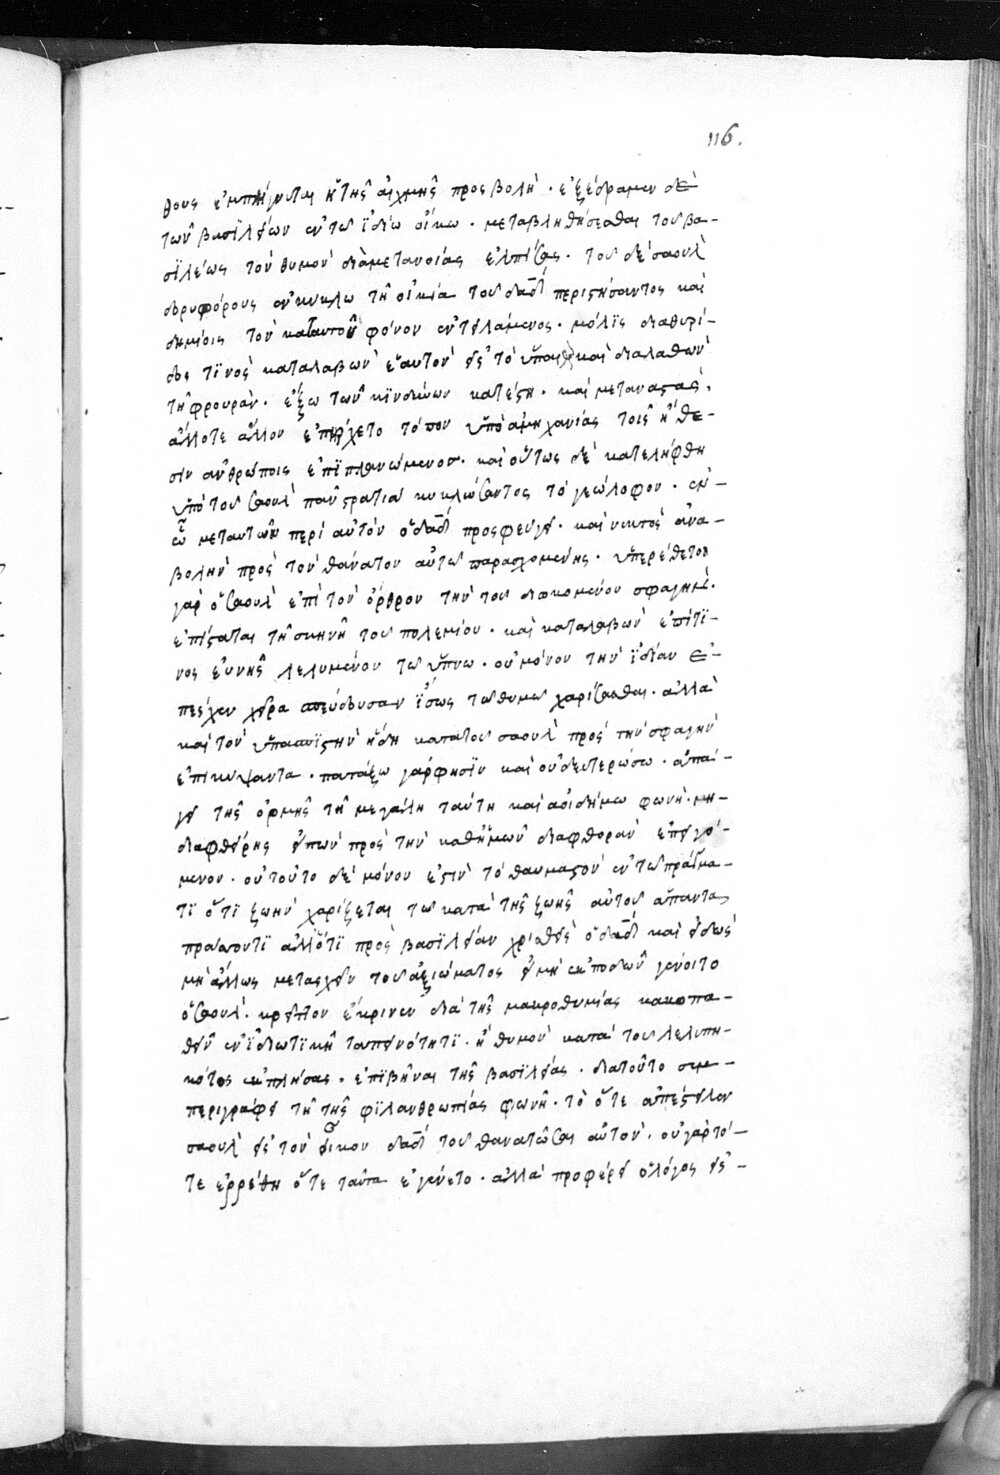 116.
θους ἐμπήγνυται ἡ τῆς αἰχμῆς προσβολή. ἐξέδραμεν δὲ
τῶν βασϊλείων ἐν τῶ ἰδίω οἴκω. μεταβληθήσεσθαι τοῦ βα-
σϊλέως τὸν θυμὸν διὰ μετανοίας ἐλπίσας. τοῦ δὲ σαοὺλ
δορυφόρους ἐν κύκλω τῆ οἰκία τοῦ δαδ περιστήσαντος καὶ
δημίοις τὸν κατ αυτοῦ φόνον ἐντειλάμενος. μόλϊς διὰ θυρί-
δος τϊνὸς καταλαβὼν ἑαυτὸν εἰς τὸ ὕπαιθρον καὶ διαλαθὼν
τὴ φρουρὰν. ἔξω τῶν κϊνδύνων κατέστη. καὶ μεταναστὰς,
ἄλλοτε ἄλλον ἐπήρχετο τόπον ὑπὸ ἀμηχανίας τοῖς ἤθε-
σϊν ἀνθρώποις ἐπϊπλανώμενος. καὶ οὕτως δὲ κατελήφθη
ὑπὸ τοῦ σαοὺλ πανστρατιᾶ κυκλώσαντος τὸ γεώλοφον. ἐν
ὧ μετὰ τῶν περὶ αὐτὸν ὁ δαδ προσφεύγει. καὶ νυκτὸς ἀνα-
βολὴν πρὸς τὸν θάνατον αὐτῶ παρασχομένης. ὑπερέθετο
γὰρ ὁ σαοὺλ ἐπὶ τὸν ὄρθρον τὴν τοῦ διωκομένου σφαγὴν.
ἐπίσταται τῆ σκηνῆ τοῦ πολεμίου. καὶ καταλαβὼν ἐπί τϊ-
νος εὐνῆς λελυμένον τῶ ὕπνω. οὐ μόνον τὴν ἰδίαν ἐ-
πεῖχεν χεῖρα σπεύδουσαν ἴσως τῶ θυμῶ χαρίσασθαι. ἀλλὰ
καὶ τὸν ὑπασπϊστὴν ἤδη κατὰ τοῦ σαοὺλ πρὸς τὴν σφαγὴν
ἐπικύψαντα. πατάξω γὰρ φησϊν καὶ οὐ δευτερώσω. ἀπά-
γει τῆς ὁρμῆς τῆ μεγάλη ταύτη καὶ ἀοιδήμω φωνῆ. μὴ
διαφθείρης εἰπὼν πρὸς τὴν καθ ἡμῶν διαφθορὰν ἐπειγό-
μενον. οὐ τοῦτο δὲ μόνον ἐστὶν τὸ θαυμαστὸν ἐν τῶ πράγμα-
τϊ ὅτϊ ζωὴν χαρίζεται τῶ κατὰ τῆς ζωῆς αὐτοῦ ἅπαντα
πράττοντϊ ἀλλ ὅτϊ πρὸς βασϊλείαν χρισθεὶς ὁ δαδ καὶ εἰδὼς
μὴ ἄλλως μετασχεῖν τοῦ ἀξιώματος εἰ μὴ ἐκποδὼν γένοιτο
ὁ σαοὺλ. κρεῖττον ἔκρινεν διὰ τῆς μακροθυμίας κακοπα-
θεῖν ἐν ἰδιωτϊκῆ ταπεινότητϊ. ἢ θυμὸν κατὰ τοῦ λελυπη-
κότος ἐκπλήσας. ἐπϊβῆναι τῆς βασϊλείας. διὰ τοῦτο συμ-
περιγράφει τῆ τῆς φϊλανθρωπίας φωνῆ. τὸ ὅτε ἀπέστειλεν
σαοὺλ εἰς τὸν οἶκον δαδ τοῦ θανατῶσαι αὐτὸν. οὐ γὰρ τό-
τε ἐρρέθη ὅτε ταῦτα ἐγένετο. ἀλλὰ προφέρει ὁ λόγος εἰς-